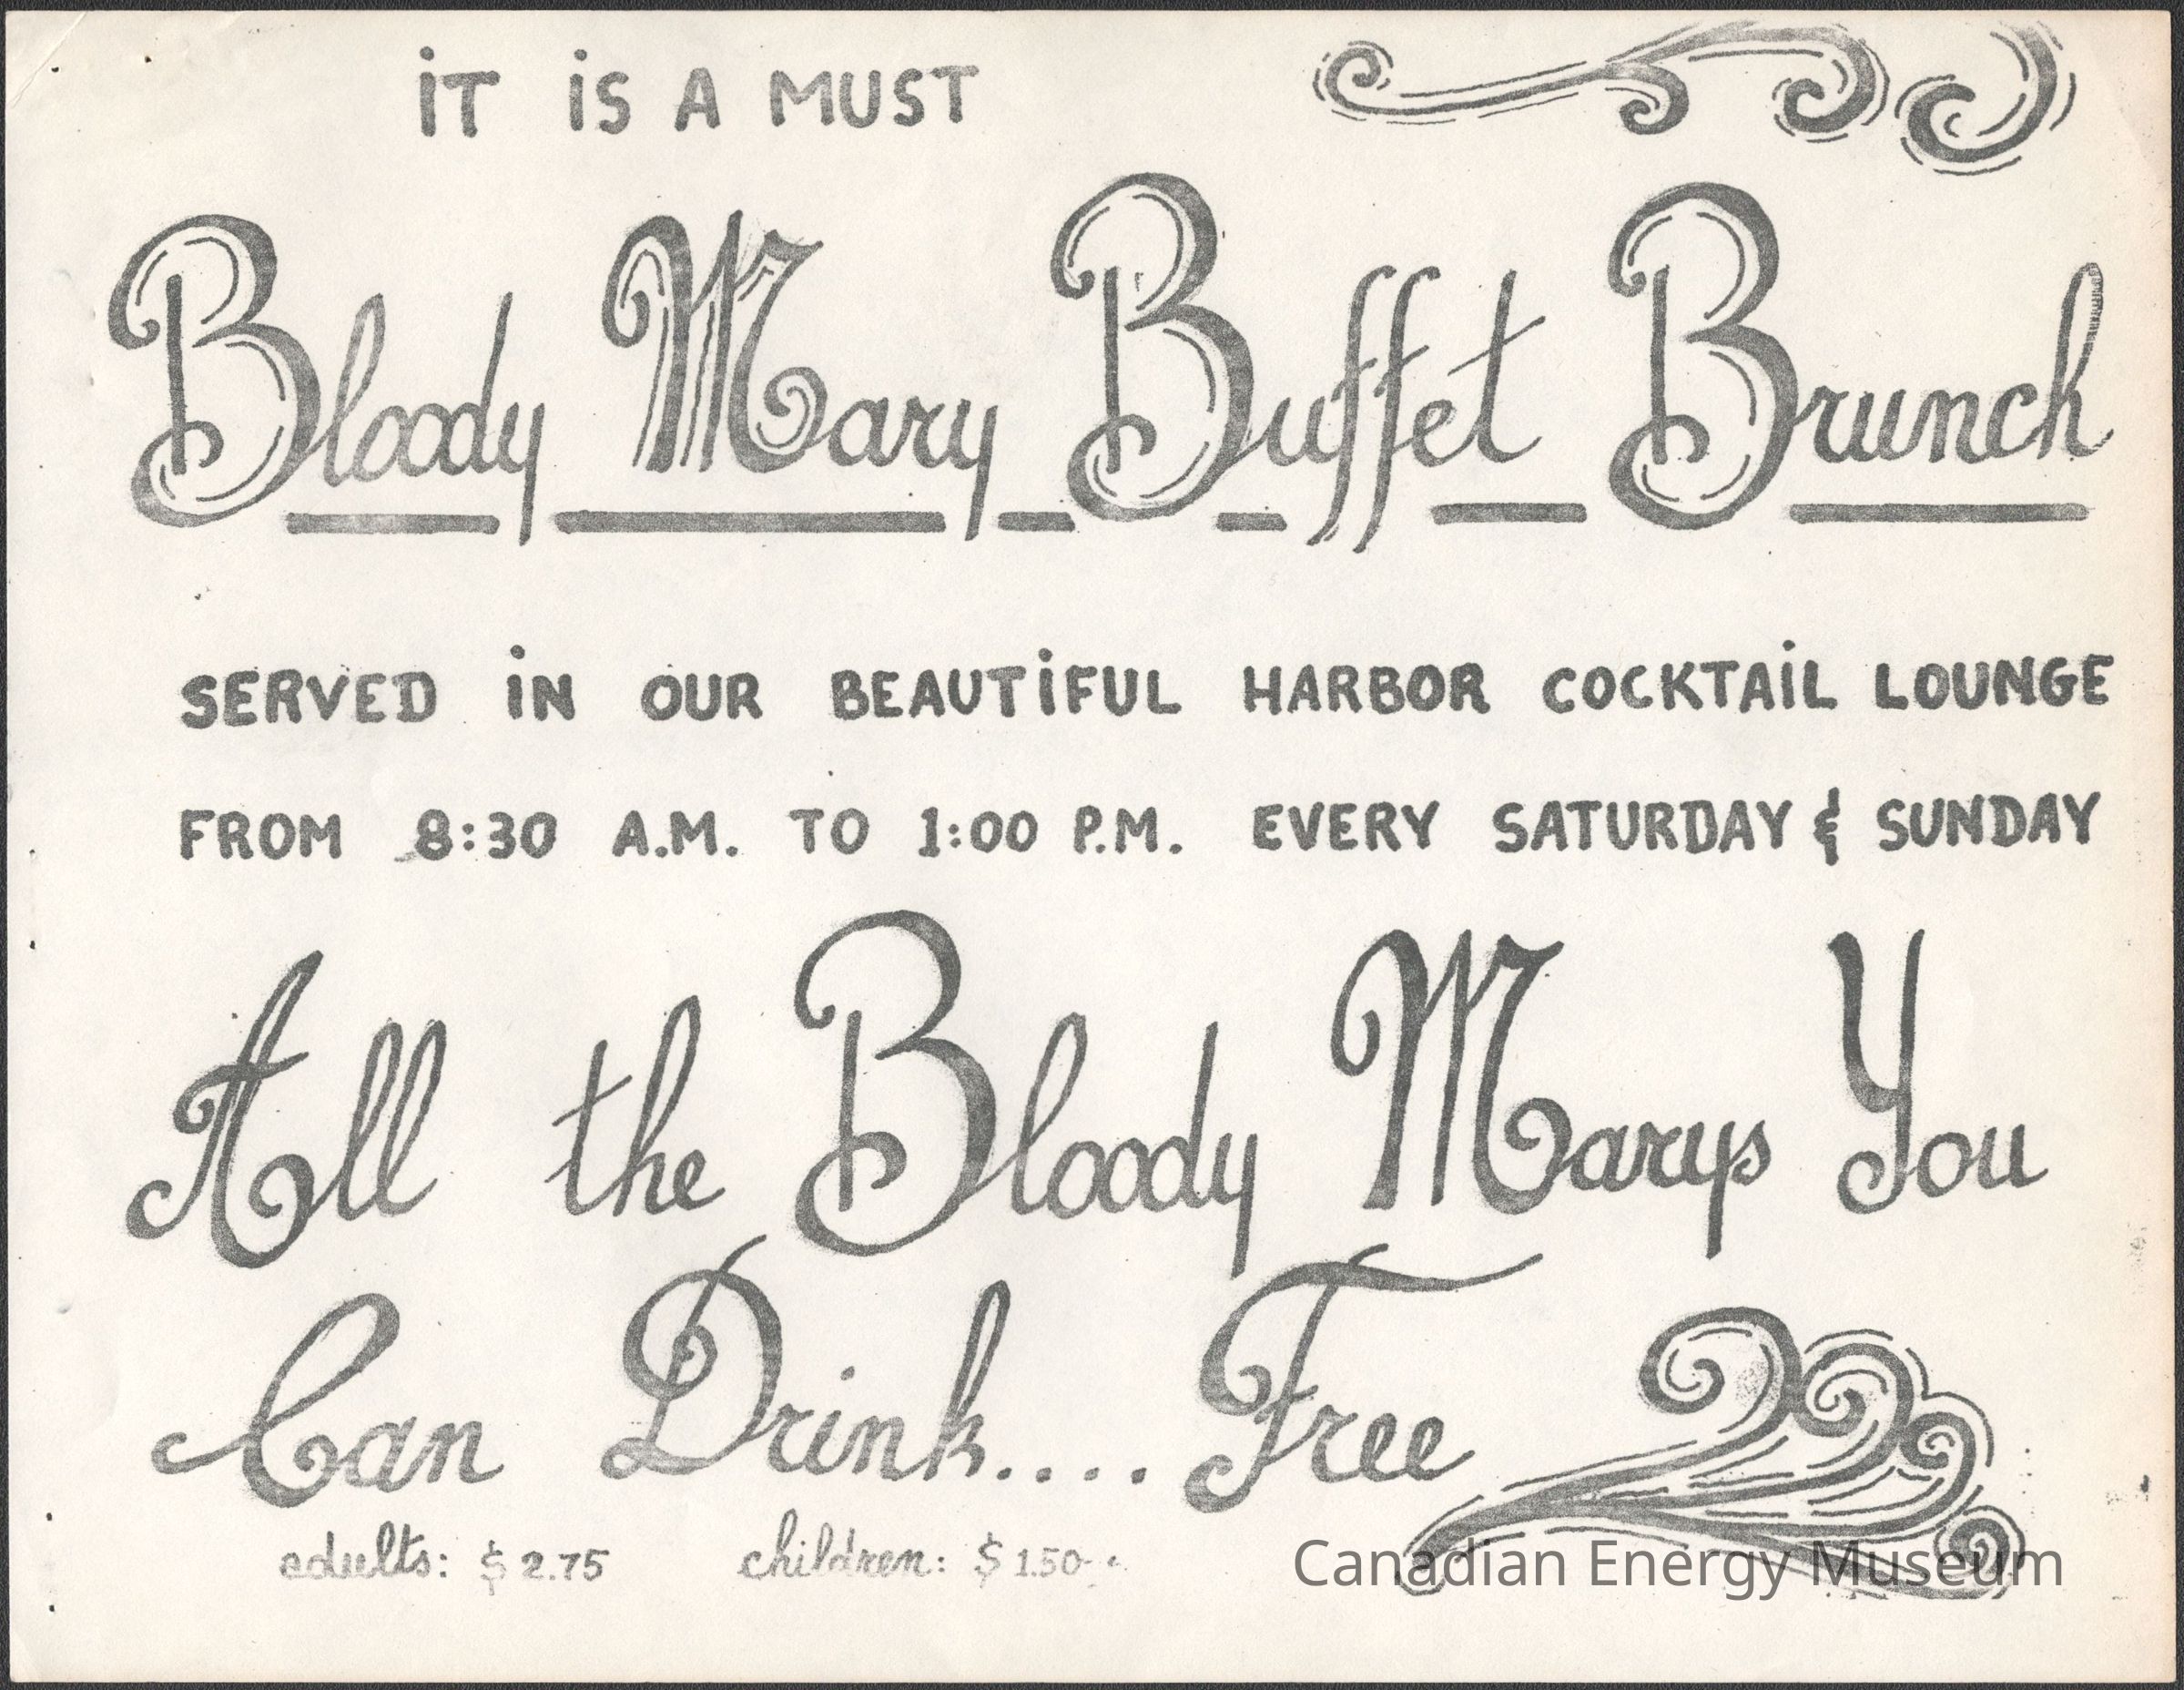 iT iS A MUST
Bloody Mary Buffet Brunch
SERVED iN OUR BEAUTiFUL HARBOR COCKTAiL LOUNGE
FROM 8:30 A.M. TO 1:00 P.M. EVERY SATURDAY & SUNDAY
All the Bloody Marys You
Can Drink.... Free
adults: $2.75 children: $1.50
Canadian Energy Museum